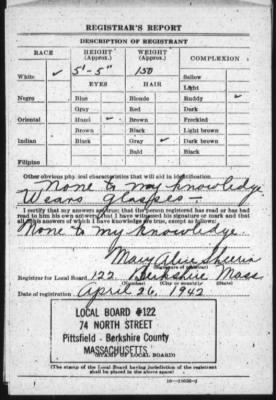 REGISTRAR'S REPORT
DESCRIPTION OF REGISTRANT
RACE HEIGHT (Approx.) WEIGHT (Approx.) COMPLEXION
White ✓ 5'-5" 150 Sallow
EYES HAIR Light
Negro Blue Blonde Ruddy ✓
Gray Red Dark
Oriental Hazel ✓ Brown Freckled
Brown Black Light brown
Indian Black Gray ✓ Dark brown
Bald Black
Filipino
Other obvious physical characteristics that will aid in identification
None to my knowledge
Wears glasses
I certify that my answers are true; that the person registered has read or has had
read to him his own answers; that I have witnessed his signature or mark and that
all of his answers of which I have knowledge are true, except as follows:
None to my knowledge.
Mary Alice
(Signature of registrar)
Registrar for Local Board 122 Berkshire Mass
(Number) (City or county) (State)
Date of registration April 26, 1942
LOCAL BOARD #122
74 NORTH STREET
Pittsfield - Berkshire County
MASSACHUSETTS
(STAMP OF LOCAL BOARD)
(The stamp of the Local Board having jurisdiction of the registrant
shall be placed in the above space.)